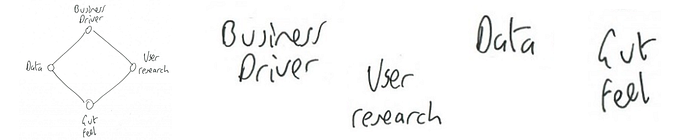 Business
Driver
Data
User
research
Gut
feel
Business
Driver
User
research
Data
Gut
feel